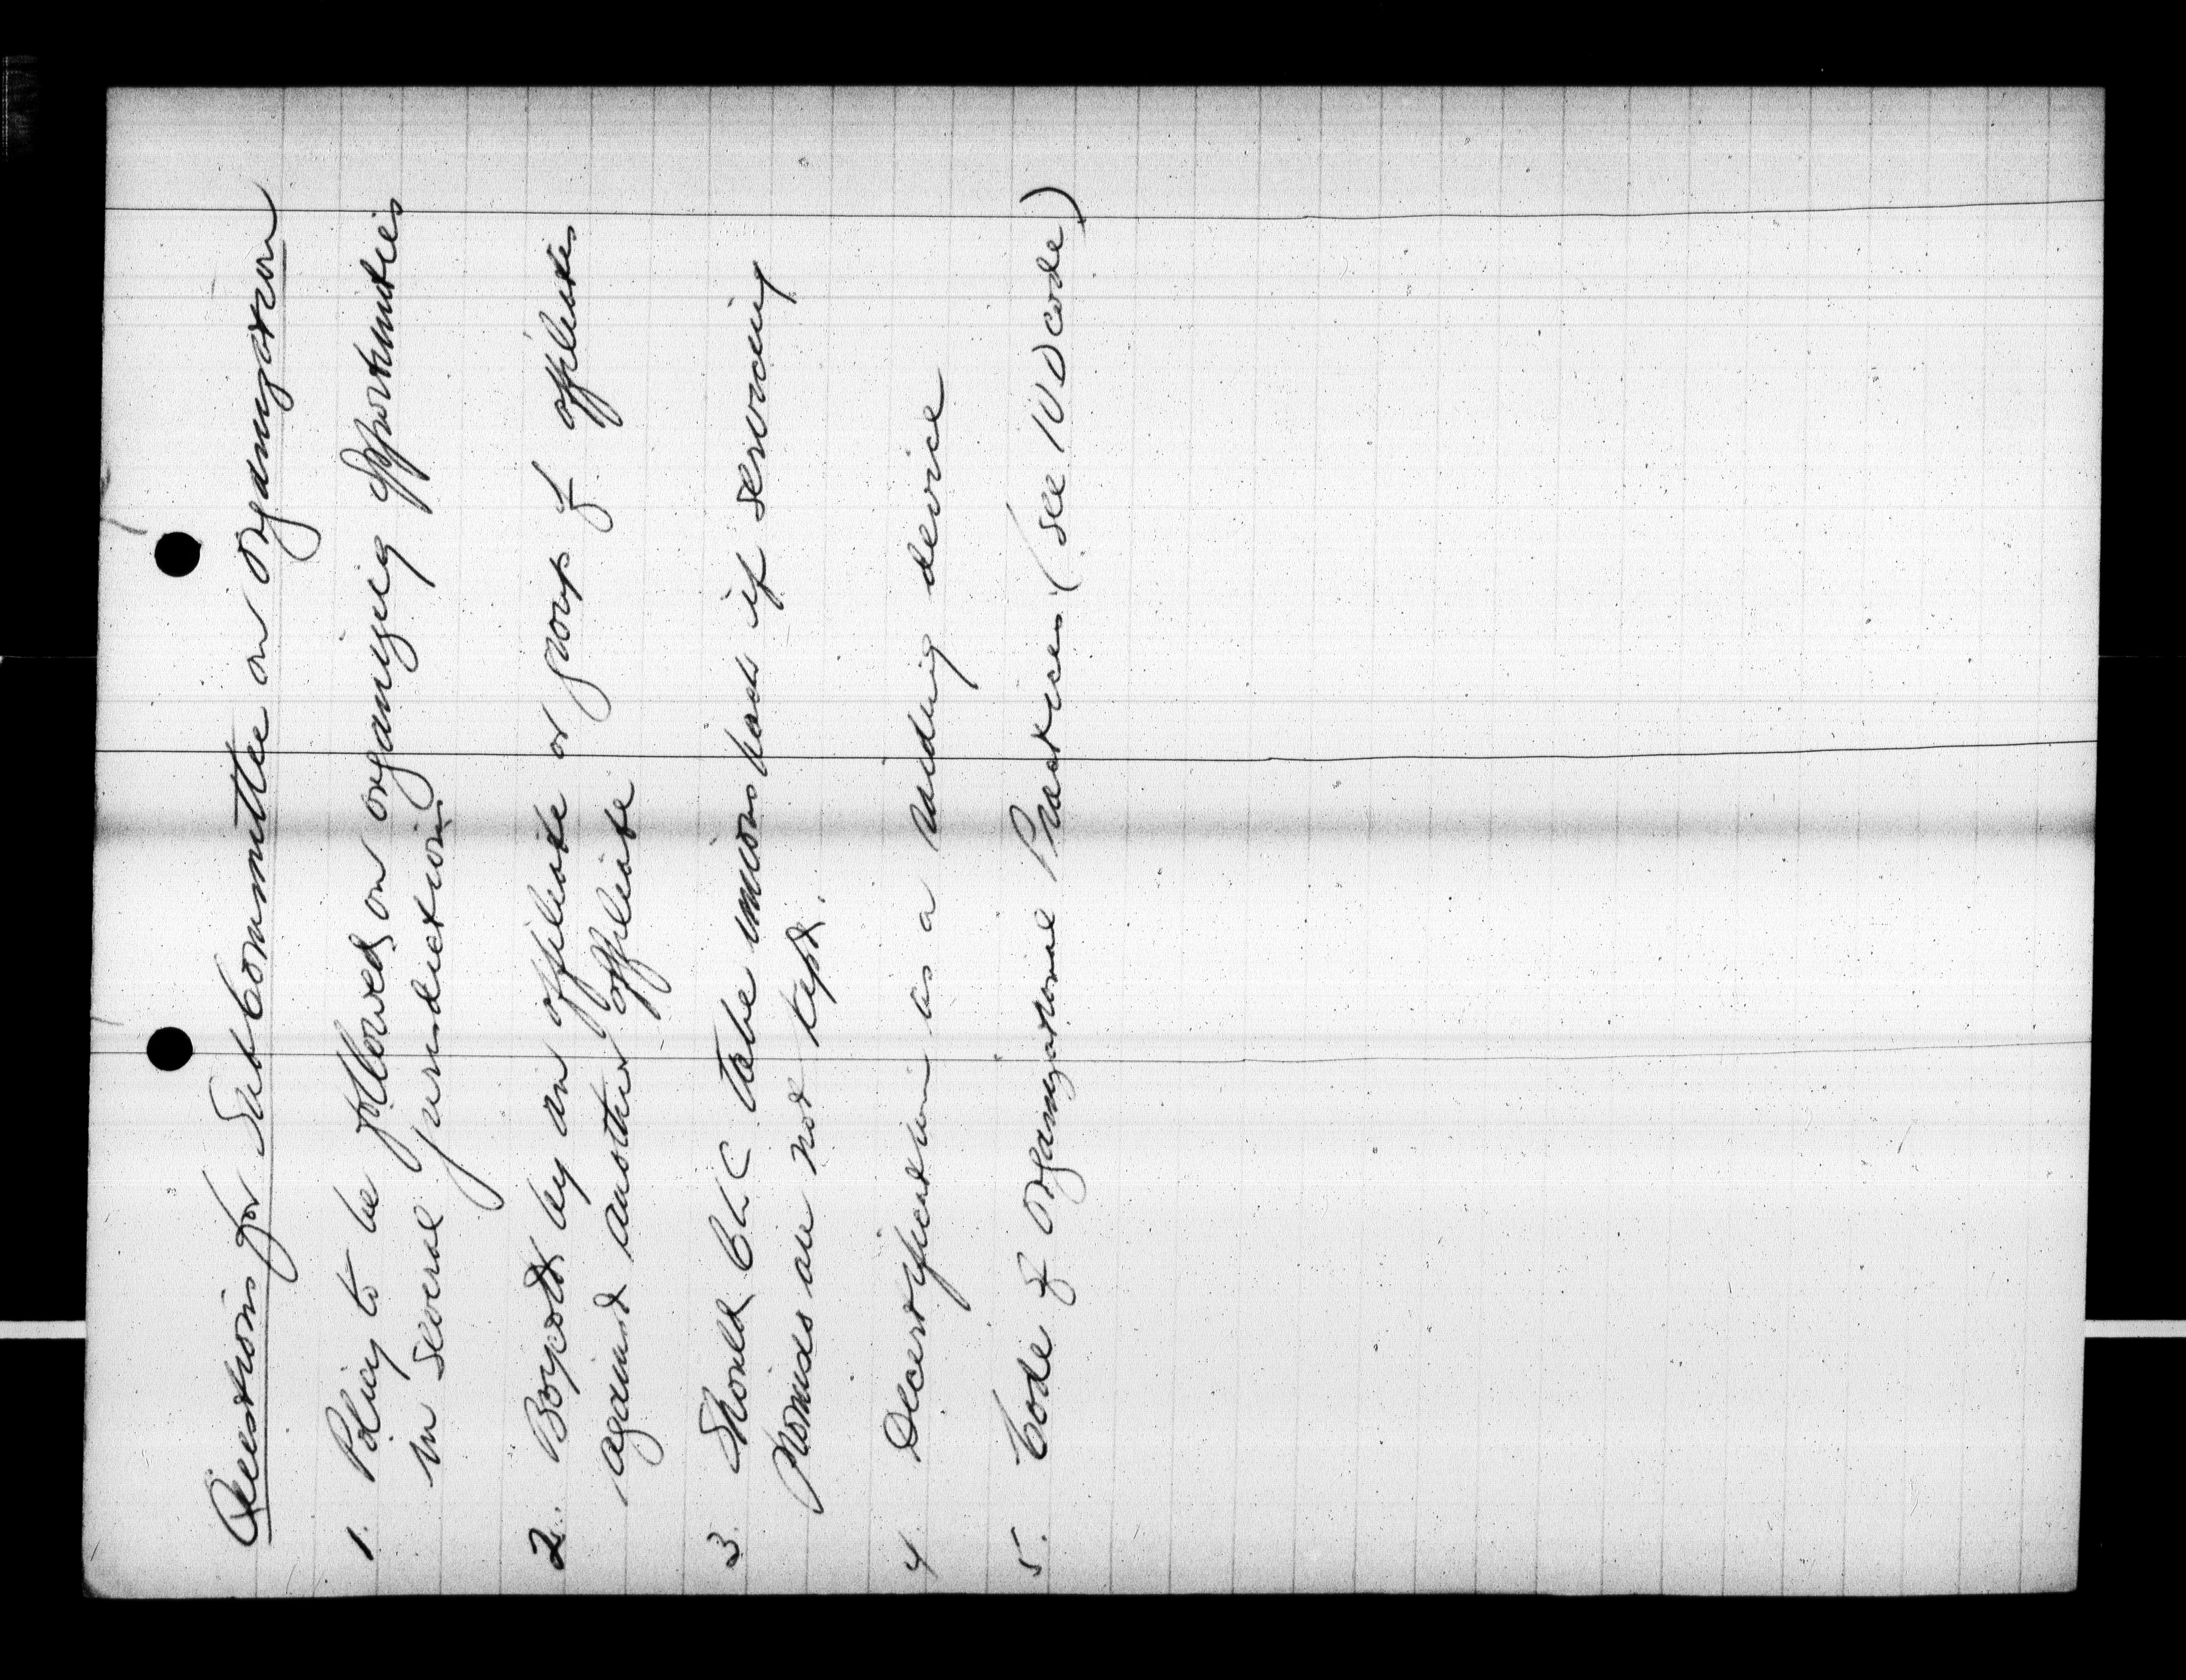 Questions for Sub Committee on Organization
1. Policy to be followed on organizing opportunities
in several jurisdictions
2. Boycott by an affiliate or group of affiliates
against another affiliate
3. Should CLC take unions back if servicing
promises are not kept.
4. Decertification as a raiding device
5. Code of Organizational Practices (see IUD code)